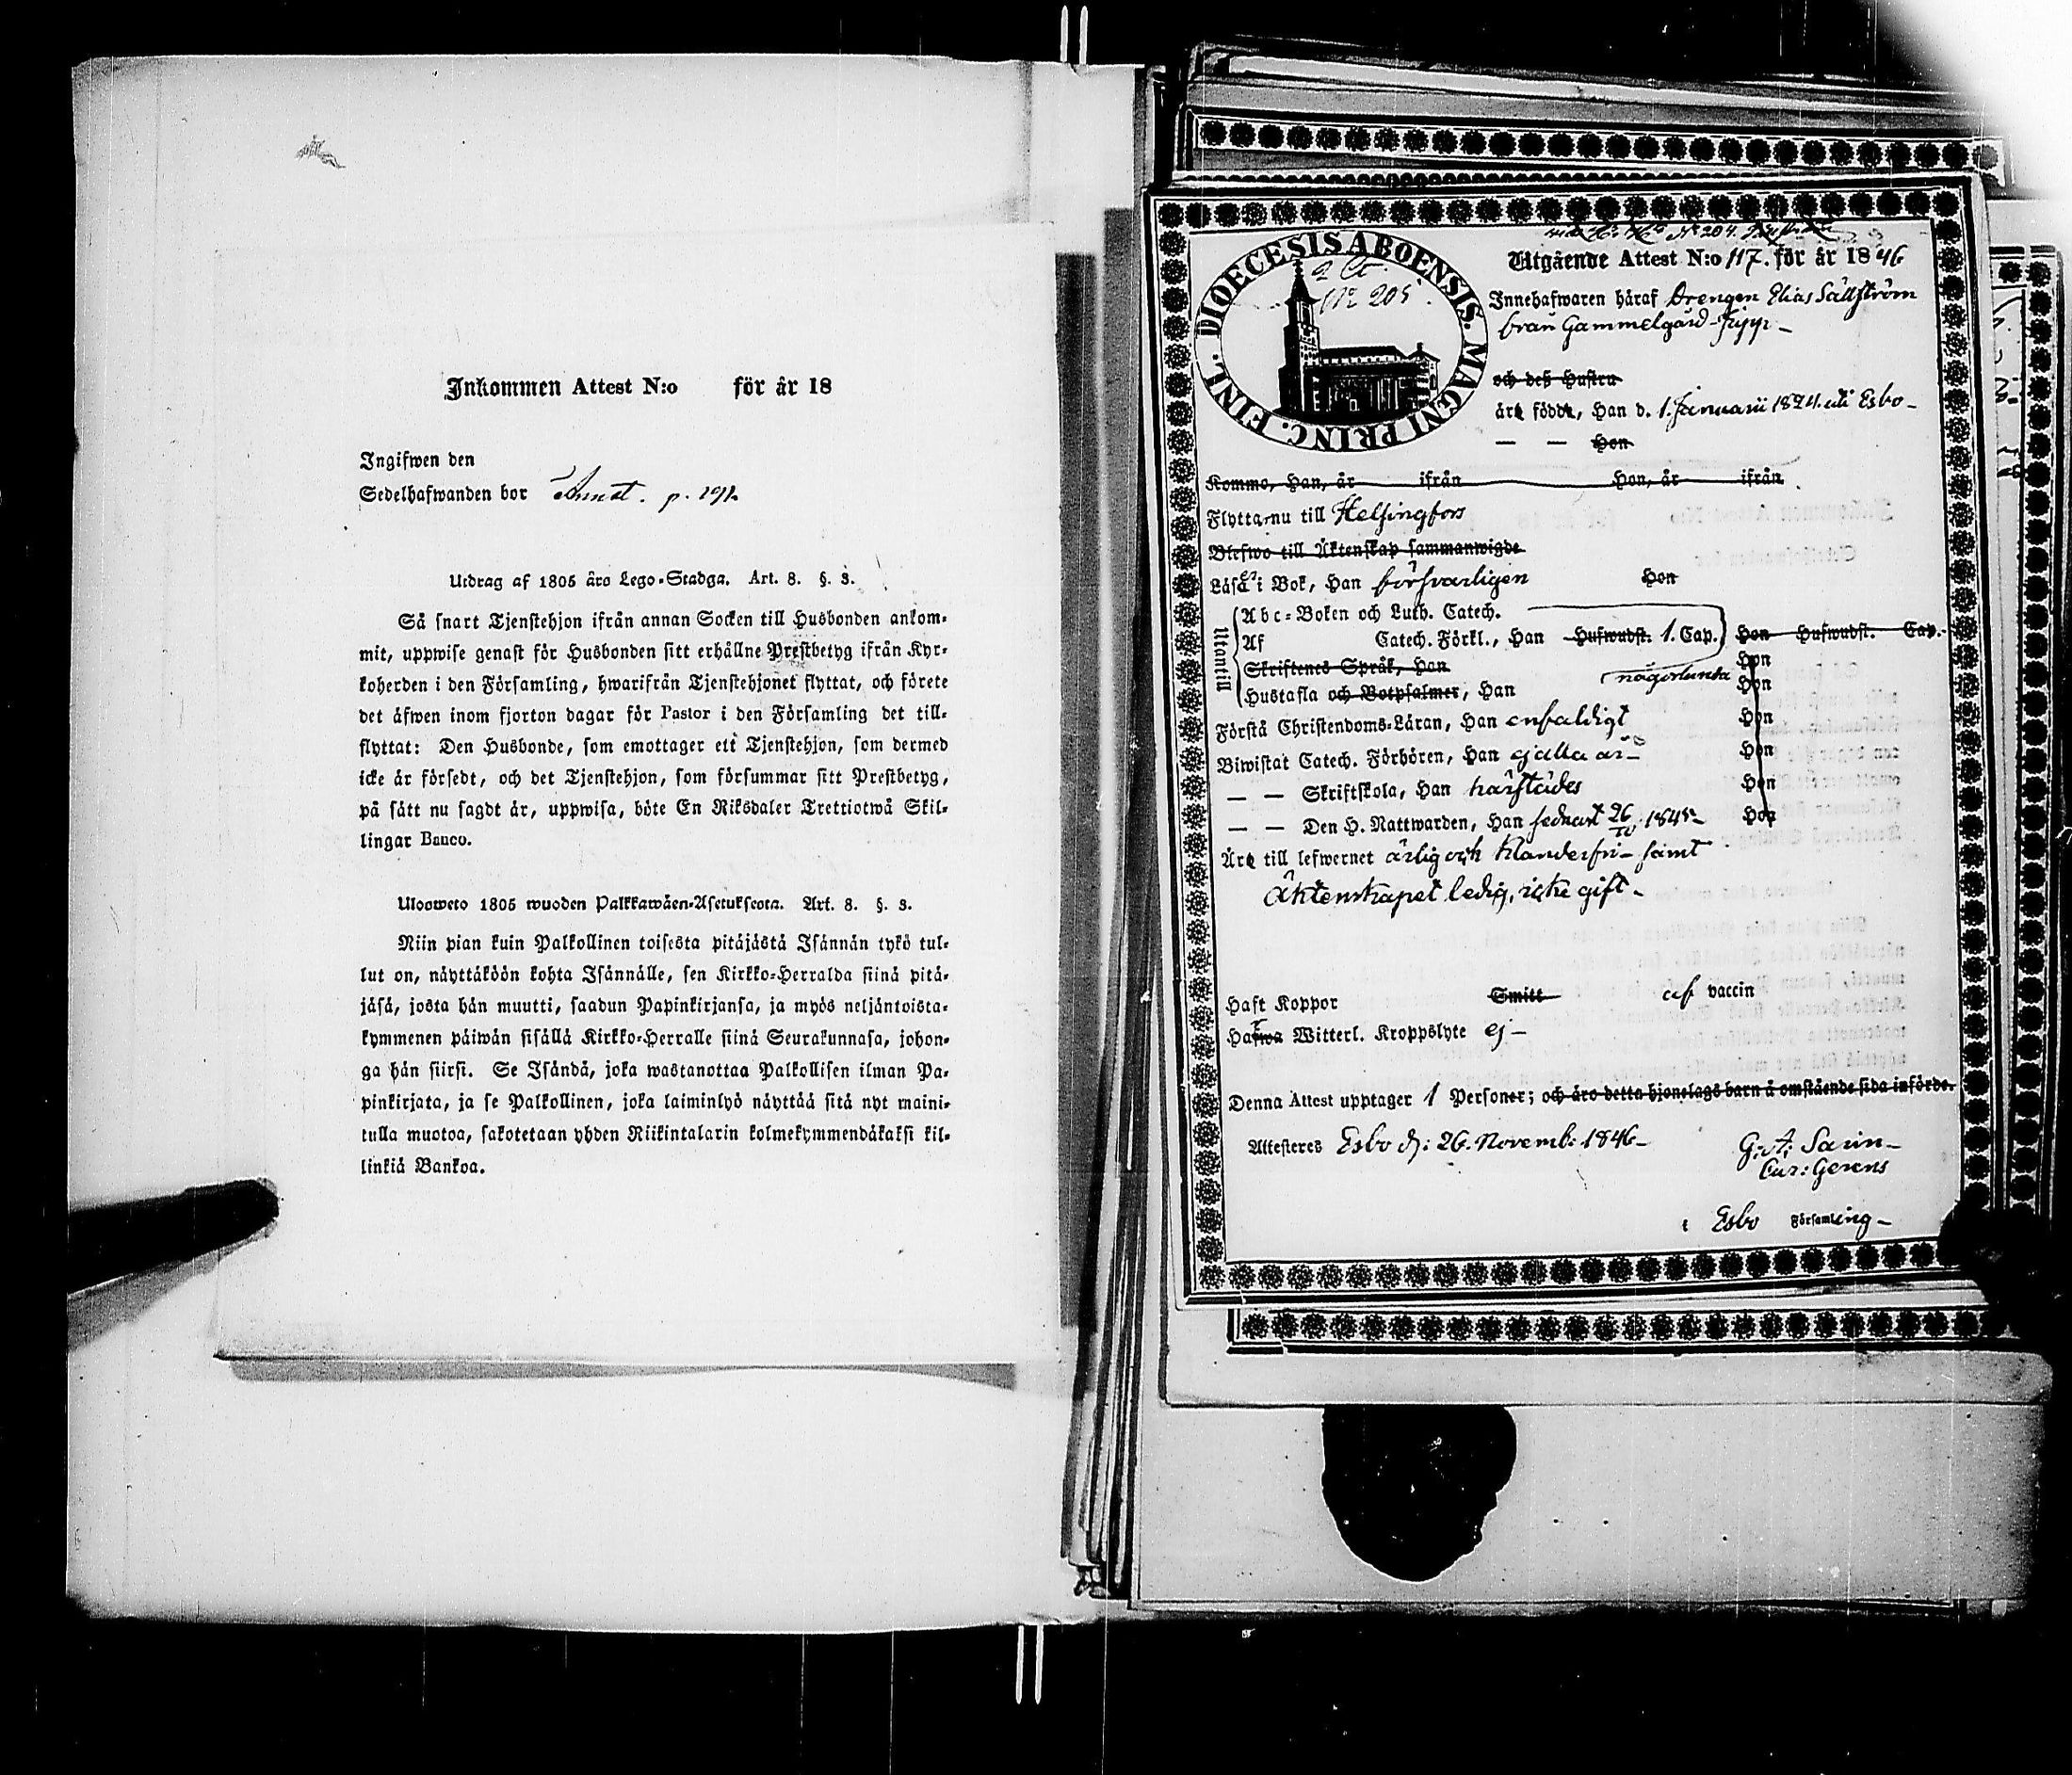 Inkommen Attest N:o för år 18
Ingifwen den
Sedelhafwanden bor Annat. p. 191.
Utdrag af 1805 års Lego-Stadga. Art. 8. §. 3.
Så snart Tjenstehjon ifrån annan Socken till Husbonden ankom-
mit, uppwise genast för Husbonden sitt erhållne Prestbetyg ifrån Kyr-
koherden i den Församling, hwarifrån Tjenstehjonet flyttat, och förete
det äfwen inom fjorton dagar för Pastor i den Församling det till-
flyttat: Den Husbonde, som emottager ett Tjenstehjon, som dermed
icke är försedt, och det Tjenstehjon, som försummar sitt Prestbetyg,
på sätt nu sagdt är, uppwisa, böte En Riksdaler Trettiotwå Skil-
lingar Banco.
Ulosweto 1805 wuoden Palkkawäen-Asetuksesta. Art. 8. §. 3.
Niin pian kuin Palkollinen toisesta pitäjästä Isännän tykö tul-
lut on, näyttäköön kohta Isännälle, sen Kirkko-Herralda siinä pitä-
jäsä, josta hän muutti, saadun Papinkirjansa, ja myös neljäntoista-
kymmenen päiwän sisällä Kirkko-Herralle siinä Seurakunnasa, johon-
ga hän siirsi. Se Isändä, joka wastanottaa Palkollisen ilman Pa-
pinkirjata, ja se Palkollinen, joka laiminlyö näyttää sitä nyt maini-
tulla muotoa, sakotetaan yhden Riikintalarin kolmekymmendäkaksi kil-
linkiä Bankoa.
DIOECESIS ABOENSIS. MAGNI PRINC. FINL.
No 205.
Utgående Attest N:o 117. för år 1846
Innehafwaren häraf Drengen Elias Sällström
från Gammelgård
och deß Hustru
äro födde, Han d. 1. Januarii 1824. uti Esbo
— — Hon
Kommo, Han, år ifrån Hon, år ifrån
Flytta nu till Helsingfors
Blefwo till Äktenskap sammanwigde
Läsa i Bok, Han försvarligen Hon
Utantill
Abc-Boken och Luth. Catech.
Af Catech. Förkl., Han Hufwudst. 1. Cap. Hon Hufwudst. Cap.
Skriftenes Språk, Han Hon
Hustafla och Botpsalmer, Han någorlunda Hon
Förstå Christendoms-Läran, Han enfaldigt Hon
Biwistat Catech. Förhören, Han ej alla år Hon
— — Skriftskola, Han härstädes Hon
— — Den H. Nattwarden, Han sednast 26/10 1845 Hon
Äro till lefwernet ärlig och klanderfri samt
Äktenskapet ledig, icke gift
Haft Koppor Smitt af vaccin
Hafwa Witterl. Kroppslyte ej
Denna Attest upptager 1 Personer; och äro detta hjonelags barn å omstående sida införde.
Attesteres Esbo d: 26. Novemb: 1846
G: A: Sarin
Cur: Gerens
i Esbo Församling